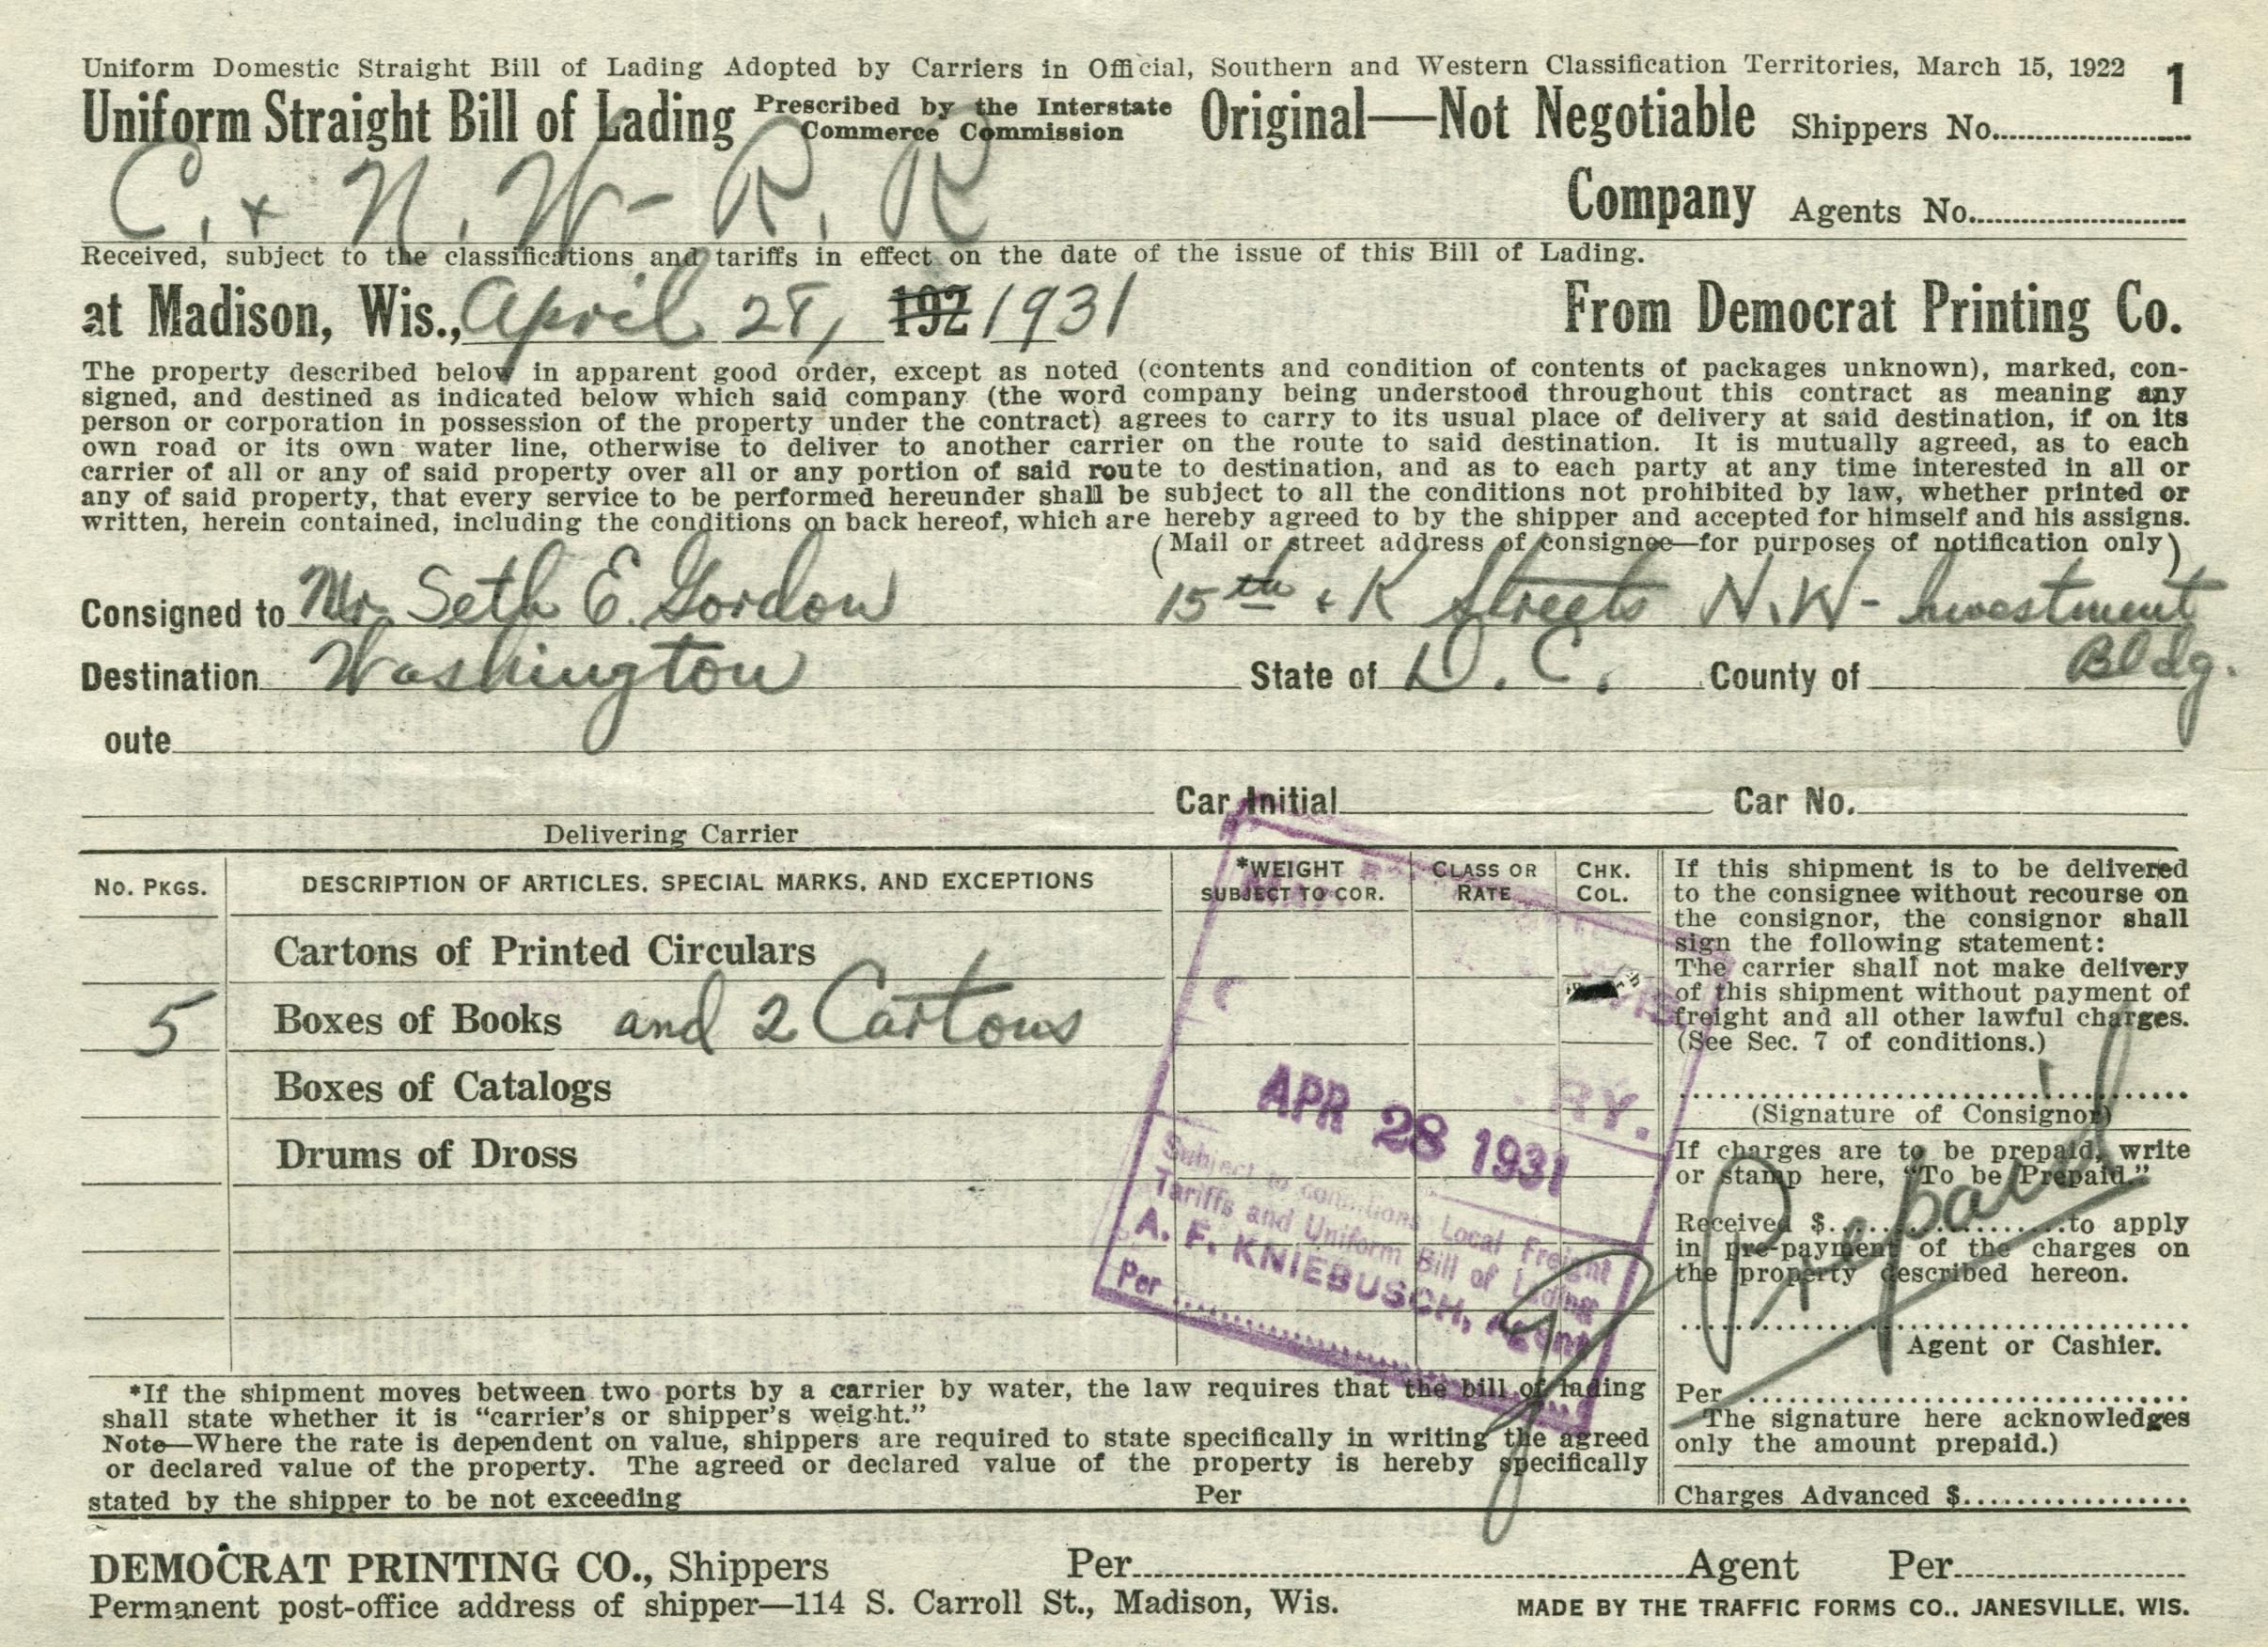 Uniform Domestic Straight Bill of Lading Adopted by Carriers in Official, Southern and Western Classification Territories, March 15, 1922 1
Uniform Straight Bill of Lading Prescribed by the Interstate Commerce Commission Original—Not Negotiable Shippers No.
C. & N. W- R. R Company Agents No.
Received, subject to the classifications and tariffs in effect on the date of the issue of this Bill of Lading.
at Madison, Wis., April 28, 192 1931 From Democrat Printing Co.
The property described below in apparent good order, except as noted (contents and condition of contents of packages unknown), marked, con-
signed, and destined as indicated below which said company (the word company being understood throughout this contract as meaning any
person or corporation in possession of the property under the contract) agrees to carry to its usual place of delivery at said destination, if on its
own road or its own water line, otherwise to deliver to another carrier on the route to said destination. It is mutually agreed, as to each
carrier of all or any of said property over all or any portion of said route to destination, and as to each party at any time interested in all or
any of said property, that every service to be performed hereunder shall be subject to all the conditions not prohibited by law, whether printed or
written, herein contained, including the conditions on back hereof, which are hereby agreed to by the shipper and accepted for himself and his assigns.
(Mail or street address of consignee—for purposes of notification only)
Consigned to Mr. Seth E. Gordon 15th & K Streets N.W- Investment
Destination Washington State of D. C. County of Bldg.
oute
Car Initial Car No.
Delivering Carrier
No. PKGS. DESCRIPTION OF ARTICLES, SPECIAL MARKS, AND EXCEPTIONS *WEIGHT SUBJECT TO COR. CLASS OR RATE CHK. COL.
Cartons of Printed Circulars
5 Boxes of Books and 2 Cartons
Boxes of Catalogs
Drums of Dross
RY.
APR 28 1931
Subject to conditions Local Freight
Tariffs and Uniform Bill of Lading
A. F. KNIEBUSCH, Agent
Per
If this shipment is to be delivered
to the consignee without recourse on
the consignor, the consignor shall
sign the following statement:
The carrier shall not make delivery
of this shipment without payment of
freight and all other lawful charges.
(See Sec. 7 of conditions.)
(Signature of Consignor)
If charges are to be prepaid, write
or stamp here, "To be Prepaid."
Prepaid
Received $ to apply
in pre-payment of the charges on
the property described hereon.
Agent or Cashier.
Per
The signature here acknowledges
only the amount prepaid.)
Charges Advanced $
*If the shipment moves between two ports by a carrier by water, the law requires that the bill of lading
shall state whether it is "carrier's or shipper's weight."
Note—Where the rate is dependent on value, shippers are required to state specifically in writing the agreed
or declared value of the property. The agreed or declared value of the property is hereby specifically
stated by the shipper to be not exceeding Per
DEMOCRAT PRINTING CO., Shippers Per Agent Per
Permanent post-office address of shipper—114 S. Carroll St., Madison, Wis. MADE BY THE TRAFFIC FORMS CO., JANESVILLE, WIS.